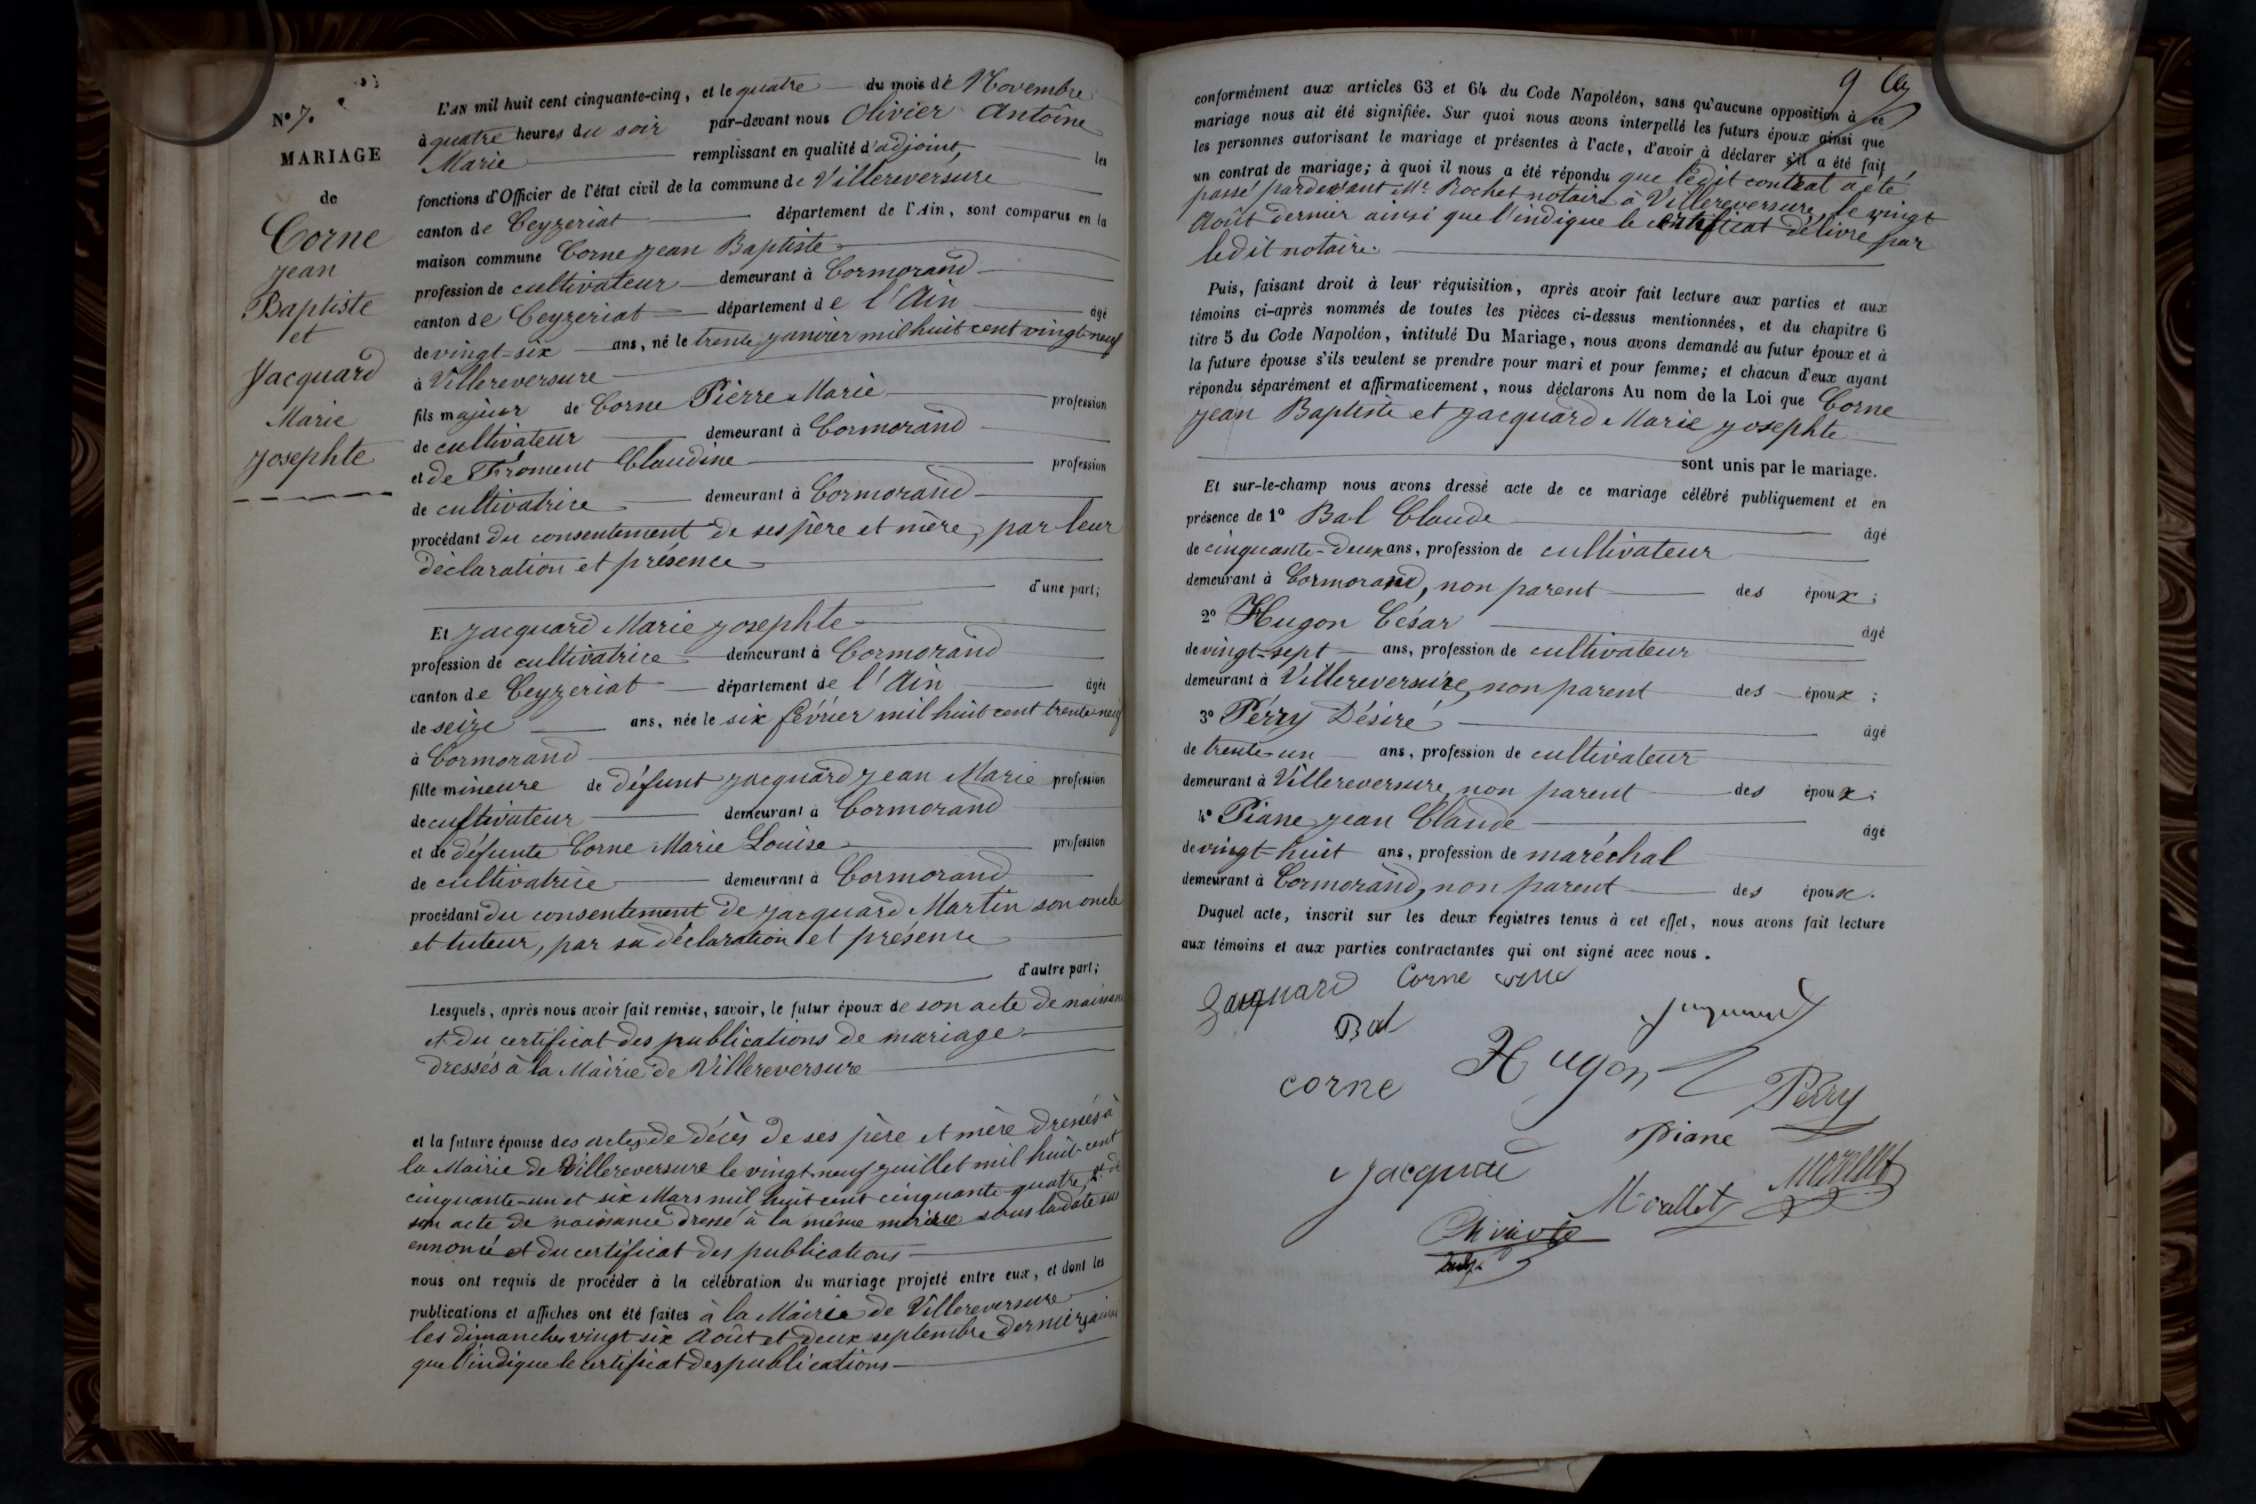 N° 7.
MARIAGE
de
Corne
Jean
Baptiste
et
Jacquard
Marie
Josephte
L'AN mil huit cent cinquante-cinq, et le quatre du mois de Novembre
à quatre heures du soir par-devant nous Olivier Antoine
Marie remplissant en qualité d'adjoint, les
fonctions d'Officier de l'état civil de la commune de Villereversure
canton de Ceyzeriat département de l'Ain, sont comparus en la
maison commune Corne Jean Baptiste
profession de cultivateur demeurant à Cormorand
canton de Ceyzeriat département de l'Ain âgé
de vingt-six ans, né le trente janvier mil huit cent vingt-neuf
à Villereversure
fils majeur de Corne Pierre Marie profession
de cultivateur demeurant à Cormorand
et de Froment Claudine profession
de cultivatrice demeurant à Cormorand
procédant du consentement de ses père et mère, par leur
déclaration et présence
d'une part;
Et Jacquard Marie Josephte
profession de cultivatrice demeurant à Cormorand
canton de Ceyzeriat département de l'Ain âgée
de seize ans, née le six février mil huit cent trente neuf
à Cormorand
fille mineure de défunt Jacquard Jean Marie profession
de cultivateur demeurant à Cormorand
et de défunte Corne Marie Louise profession
de cultivatrice demeurant à Cormorand
procédant du consentement de Jacquard Martin son oncle
et tuteur, par sa déclaration et présence
d'autre part;
Lesquels, après nous avoir fait remise, savoir, le futur époux de son acte de naissance
et du certificat des publications de mariage
dressés à la Mairie de Villereversure
et la future épouse des actes de décès de ses père et mère dressés à
la Mairie de Villereversure le vingt neuf juillet mil huit-cent
cinquante-un et six Mars mil huit cent cinquante-quatre, 2° de
son acte de naissance dressé à la même mairie sous la date sus
ennoncé et du certificat des publications
nous ont requis de procéder à la célébration du mariage projeté entre eux, et dont les
publications et affiches ont été faites à la Mairie de Villereversure
les dimanches vingt six Août et deux septembre dernier, ainsi
que l'indique le certificat des publications
9
conformément aux articles 63 et 64 du Code Napoléon, sans qu'aucune opposition à ce
mariage nous ait été signifiée. Sur quoi nous avons interpellé les futurs époux ainsi que
les personnes autorisant le mariage et présentes à l'acte, d'avoir à déclarer s'il a été fait
un contrat de mariage; à quoi il nous a été répondu que ledit contrat a été
passé pardevant Mr Rochet notaire à Villereversure, le vingt
Août dernier ainsi que l'indique le certificat délivré par
ledit notaire.
Puis, faisant droit à leur réquisition, après avoir fait lecture aux parties et aux
témoins ci-après nommés de toutes les pièces ci-dessus mentionnées, et du chapitre 6
titre 5 du Code Napoléon, intitulé Du Mariage, nous avons demandé au futur époux et à
la future épouse s'ils veulent se prendre pour mari et pour femme; et chacun d'eux ayant
répondu séparément et affirmativement, nous déclarons Au nom de la Loi que Corne
Jean Baptiste et Jacquard Marie Josephte
sont unis par le mariage.
Et sur-le-champ nous avons dressé acte de ce mariage célébré publiquement et en
présence de 1° Bal Claude âgé
de cinquante-deux ans, profession de cultivateur
demeurant à Cormorand, non parent des époux;
2° Hugon César âgé
de vingt-sept ans, profession de cultivateur
demeurant à Villereversure, non parent des époux;
3° Perry Désiré âgé
de trente-un ans, profession de cultivateur
demeurant à Villereversure, non parent des époux;
4° Piane Jean Claude âgé
de vingt-huit ans, profession de maréchal
demeurant à Cormorand, non parent des époux.
Duquel acte, inscrit sur les deux registres tenus à cet effet, nous avons fait lecture
aux témoins et aux parties contractantes qui ont signé avec nous.
Jacquard Corne
Bal
Hugon
Corne
Perry
Piane
Morellet